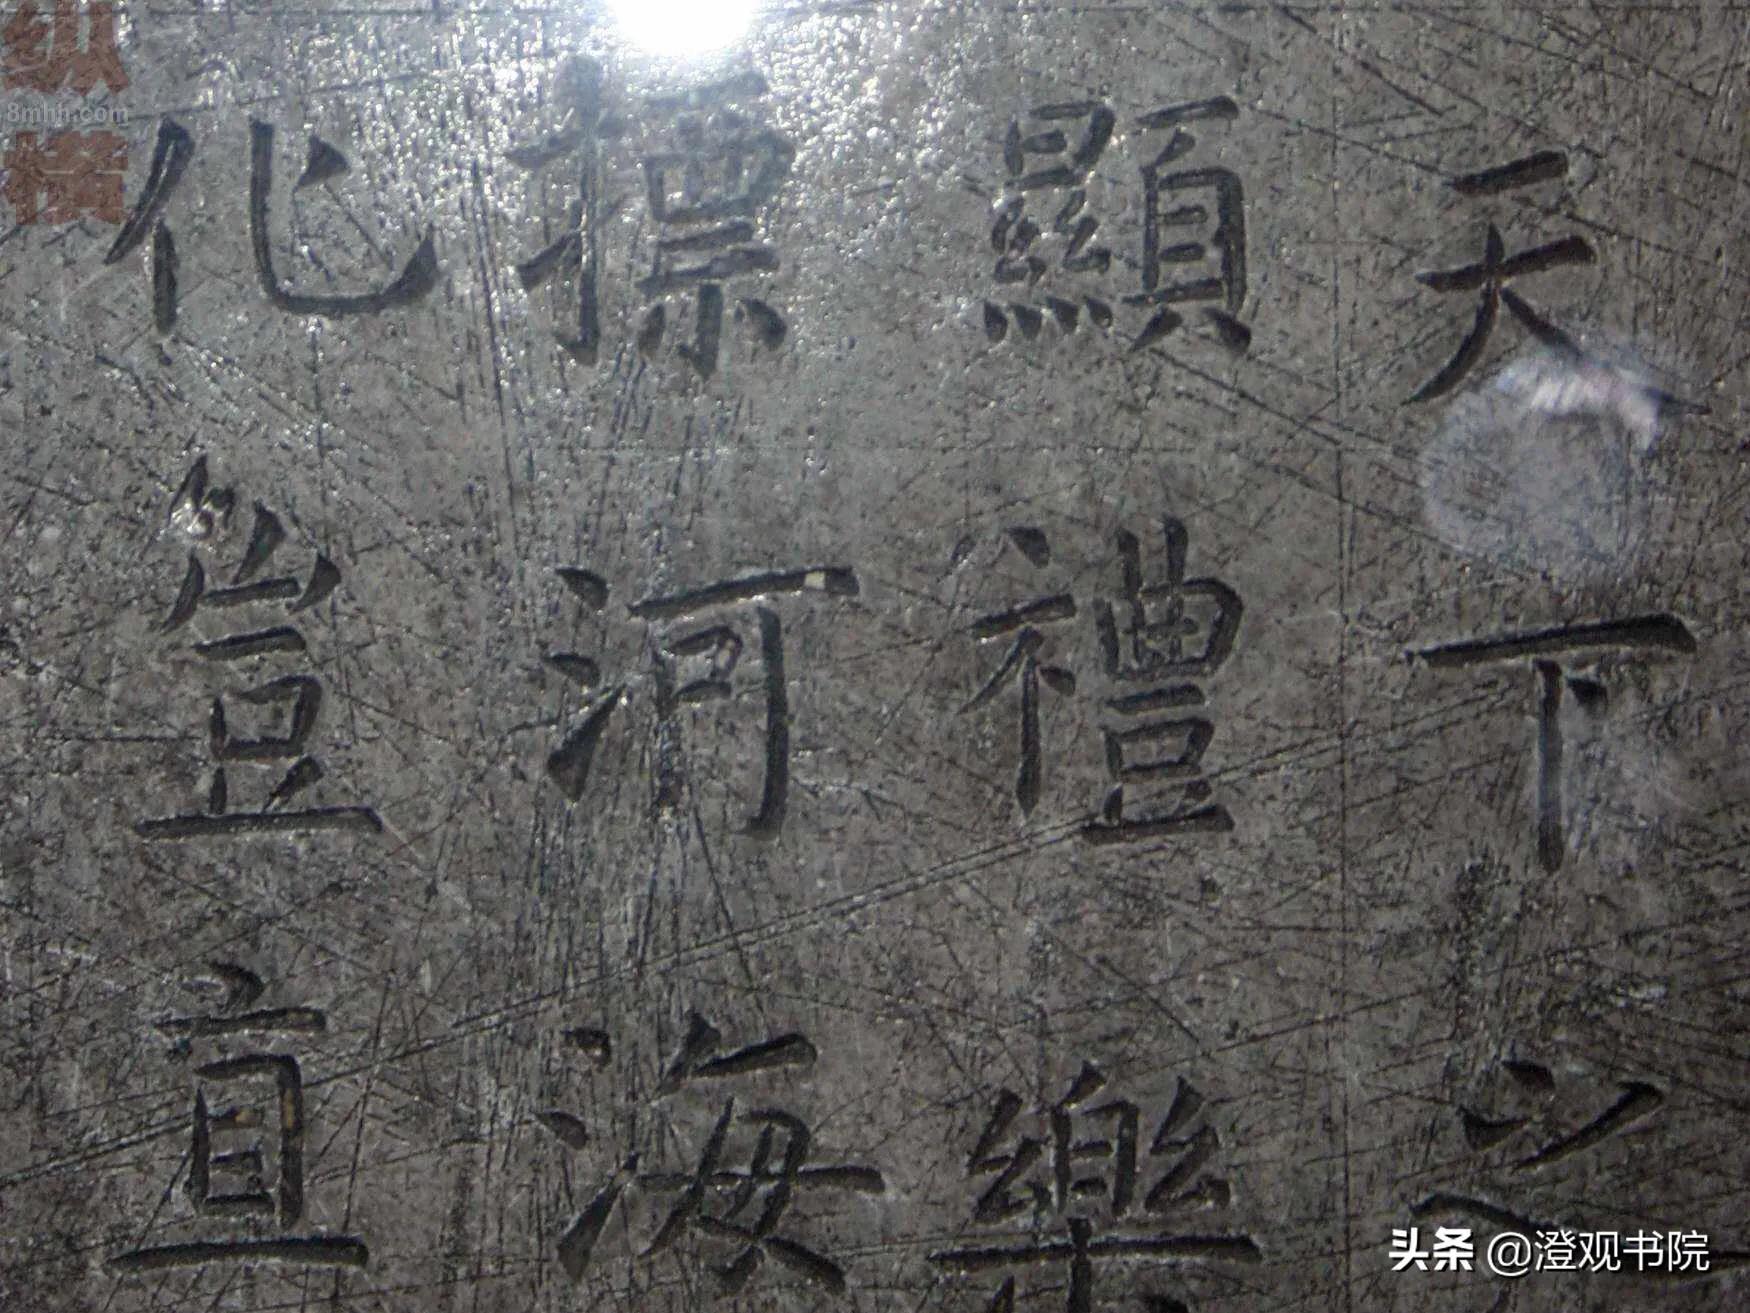 天下之
顯禮樂
標河海
化豈直
纵横
8mhh.com
头条 @澄观书院